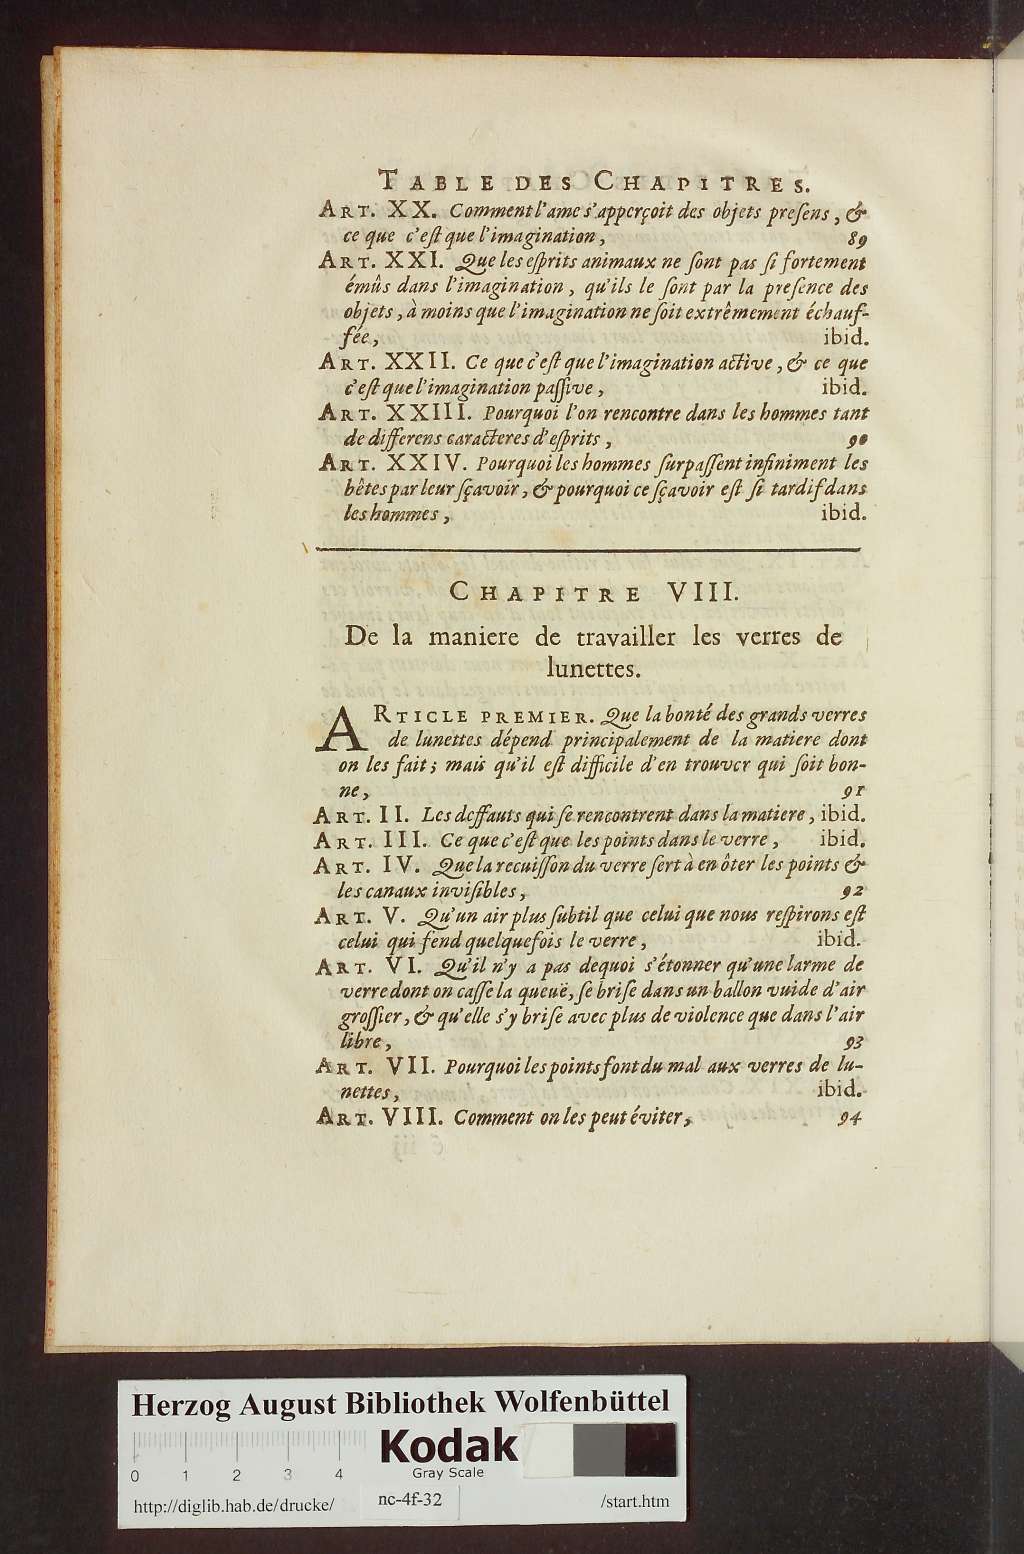 TABLE DES CHAPITRES.
ART. XX. Comment l'ame s'apperçoit des objets preſens, &
ce que c'eſt que l'imagination, 89
ART. XXI. Que les eſprits animaux ne ſont pas ſi fortement
émûs dans l'imagination, qu'ils le ſont par la preſence des
objets, à moins que l'imagination ne ſoit extrêmement échauf-
fée, ibid.
ART. XXII. Ce que c'eſt que l'imagination active, & ce que
c'eſt que l'imagination paſſive, ibid.
ART. XXIII. Pourquoi l'on rencontre dans les hommes tant
de differens caracteres d'eſprits, 90
ART. XXIV. Pourquoi les hommes ſurpaſſent infiniment les
bêtes par leur ſçavoir, & pourquoi ce ſçavoir eſt ſi tardif dans
les hommes, ibid.
CHAPITRE VIII.
De la maniere de travailler les verres de
lunettes.
ARTICLE PREMIER. Que la bonté des grands verres
de lunettes dépend principalement de la matiere dont
on les fait; mais qu'il eſt difficile d'en trouver qui ſoit bon-
ne, 91
ART. II. Les deffauts qui ſe rencontrent dans la matiere, ibid.
ART. III. Ce que c'eſt que les points dans le verre, ibid.
ART. IV. Que la recuiſſon du verre ſert à en ôter les points &
les canaux inviſibles, 92
ART. V. Qu'un air plus ſubtil que celui que nous reſpirons eſt
celui qui fend quelquefois le verre, ibid.
ART. VI. Qu'il n'y a pas dequoi s'étonner qu'une larme de
verre dont on caſſe la queuë, ſe briſe dans un ballon vuide d'air
groſſier, & qu'elle s'y briſe avec plus de violence que dans l'air
libre, 93
ART. VII. Pourquoi les points font du mal aux verres de lu-
nettes, ibid.
ART. VIII. Comment on les peut éviter, 94
Herzog August Bibliothek Wolfenbüttel
Kodak
Gray Scale
0 1 2 3 4
http://diglib.hab.de/drucke/ nc-4f-32 /start.htm